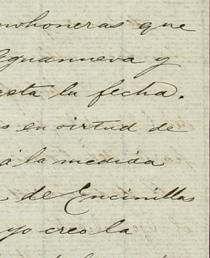 que
Aguanueva y
esta la fecha.
s en virtud de
á la medida
de Encinillas
yo creo la